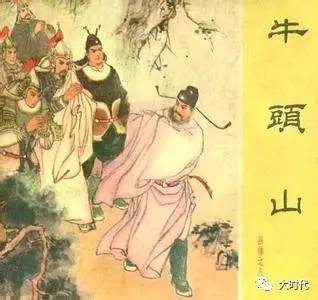 牛頭山
岳傳之
大时代